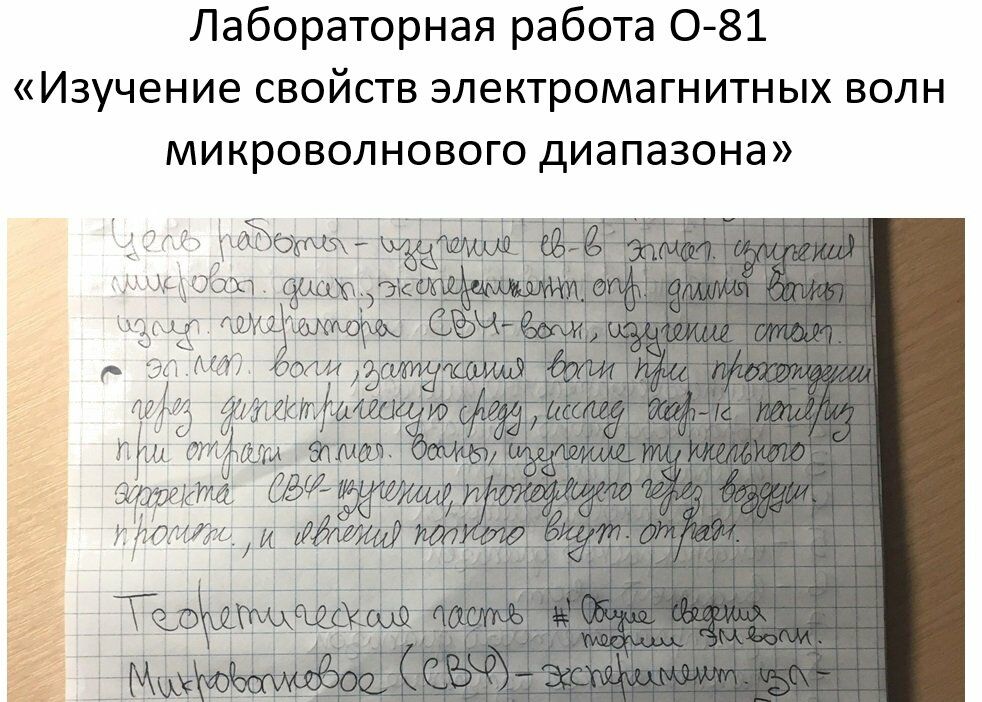 Лабораторная работа О-81
«Изучение свойств электромагнитных волн
микроволнового диапазона»
Цель работы – изучение св-в эл.маг. излучения
микровол. диап., эксперимент. опр. длины волны
излуч. генератора СВЧ-волн, изучение стояч.
эл.маг. волн, затухания волн при прохождении
через диэлектрическую среду, исслед хар-к поляриз
при отраж эл.маг. волны, изучение туннельного
эффекта СВЧ-излучения, проходящего через воздуш.
промеж., и явления полного внут. отраж.
Теоретическая часть # Общие сведения
теории ЭМ волн.
Микроволновое (СВЧ) – эксперимент. изл-